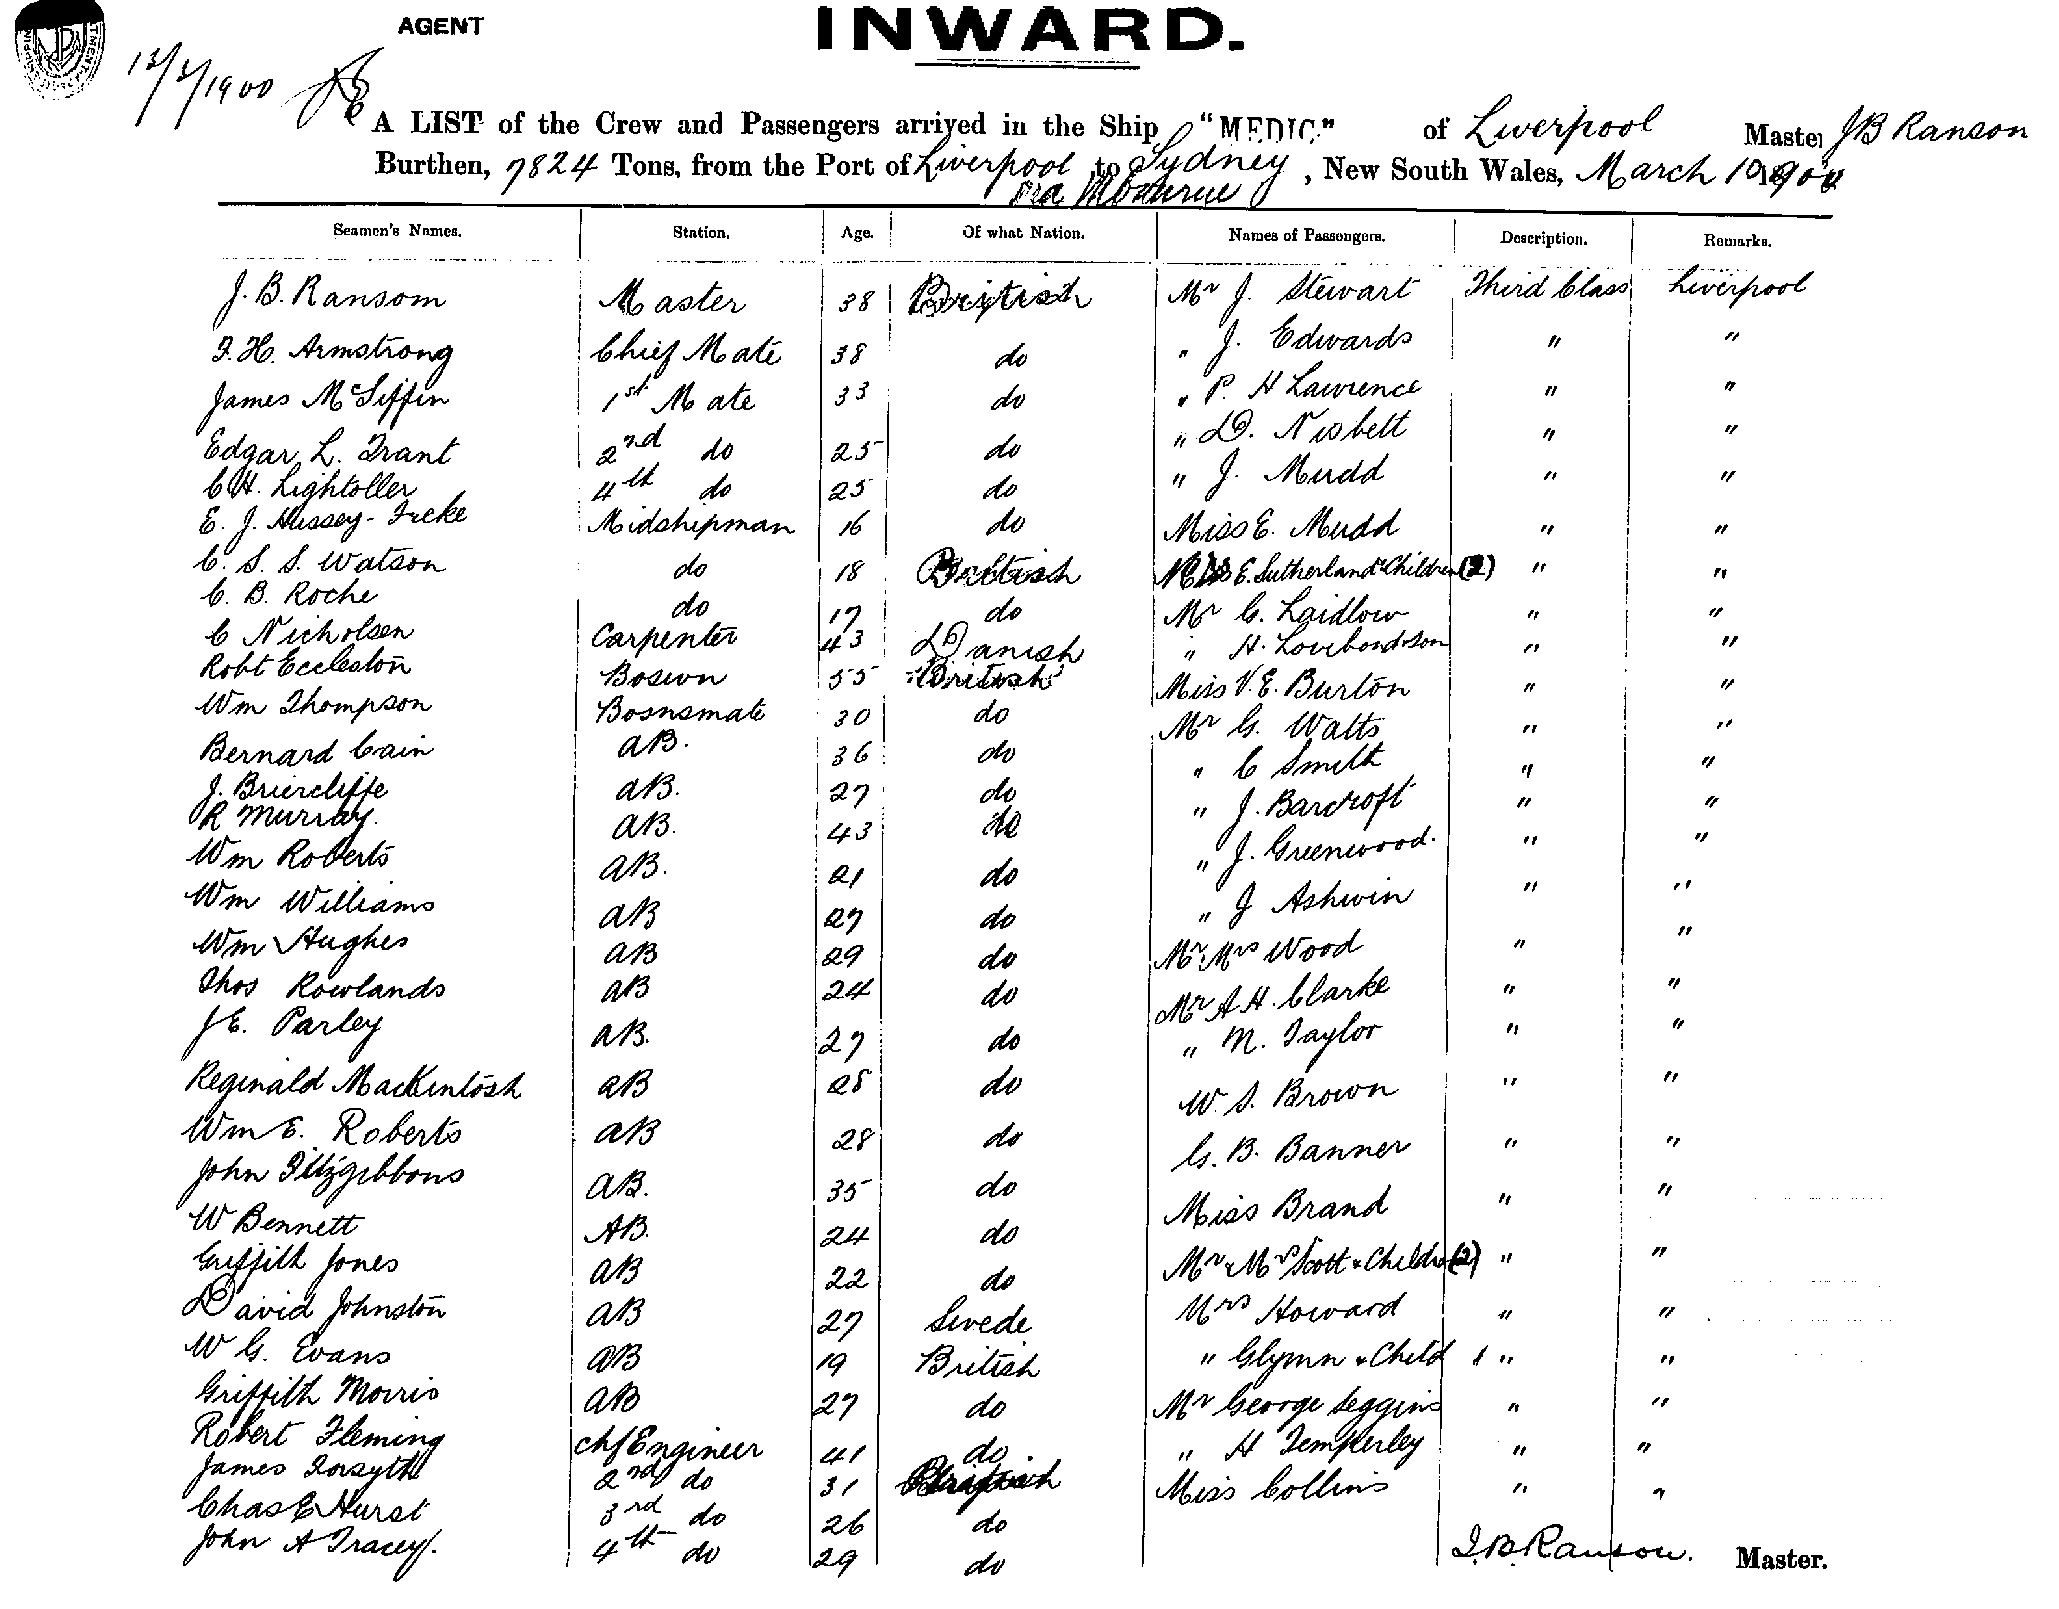 AGENT
INWARD.
12/3/1900
A LIST of the Crew and Passengers arrived in the Ship "MEDIC" of Liverpool Master J B Ranson
Burthen, 7824 Tons, from the Port of Liverpool to Sydney, New South Wales, March 10 1900
via Melbourne
Seamen's Names. Station. Age. Of what Nation. Names of Passengers. Description. Remarks.
J. B. Ransom Master 38 British Mr J. Stewart Third Class Liverpool
F. H. Armstrong Chief Mate 38 do " J. Edwards " "
James McGiffin 1st Mate 33 do " P. H Lawrence " "
Edgar L. Trant 2nd do 25 do " D. Nisbett " "
C H. Lightoller 4th do 25 do " J. Mudd " "
E. J. Hussey-Freke Midshipman 16 do Miss E. Mudd " "
C. S. S. Watson do 18 British E. Sutherland & Children (2) " "
C. B. Roche do 17 do Mr G. Laidlow " "
C Nicholsen Carpenter 43 Danish " H. Lovebond & son " "
Robt Eccleston Boswn 55 British Miss V. E. Burton " "
Wm Thompson Bosnsmate 30 do Mr G. Watts " "
Bernard Cain AB. 36 do " C Smith " "
J. Briercliffe AB. 27 do " J. Barcroft " "
R Murray. AB. 43 do " J. Greenwood. " "
Wm Roberts AB. 21 do " J Ashwin " "
Wm Williams AB 27 do Mr & Mrs Wood " "
Wm Hughes AB 29 do Mr A. H. Clarke " "
Thos Rowlands AB 24 do " M. Taylor " "
J E. Parley AB. 27 do W. S. Brown " "
Reginald MacKintosh AB 28 do G. B. Banner " "
Wm E. Roberts AB 28 do Miss Brand " "
John Fitzgibbons AB. 35 do Mr & Mrs Scott & Children (2) " "
W Bennett AB. 24 do Mrs Howard " "
Griffith Jones AB 22 do " Glynn & Child 1 " "
David Johnston AB 27 Swede Mr George Seggins " "
W G. Evans AB 19 British " H Temperley " "
Griffith Morris AB 27 do Miss Collins " "
Robert Fleming chf Engineer 41 do
James Forsyth 2nd do 31 British
Chas E Hurst 3rd do 26 do
John A Tracey. 4th do 29 do
J. B. Ranson. Master.